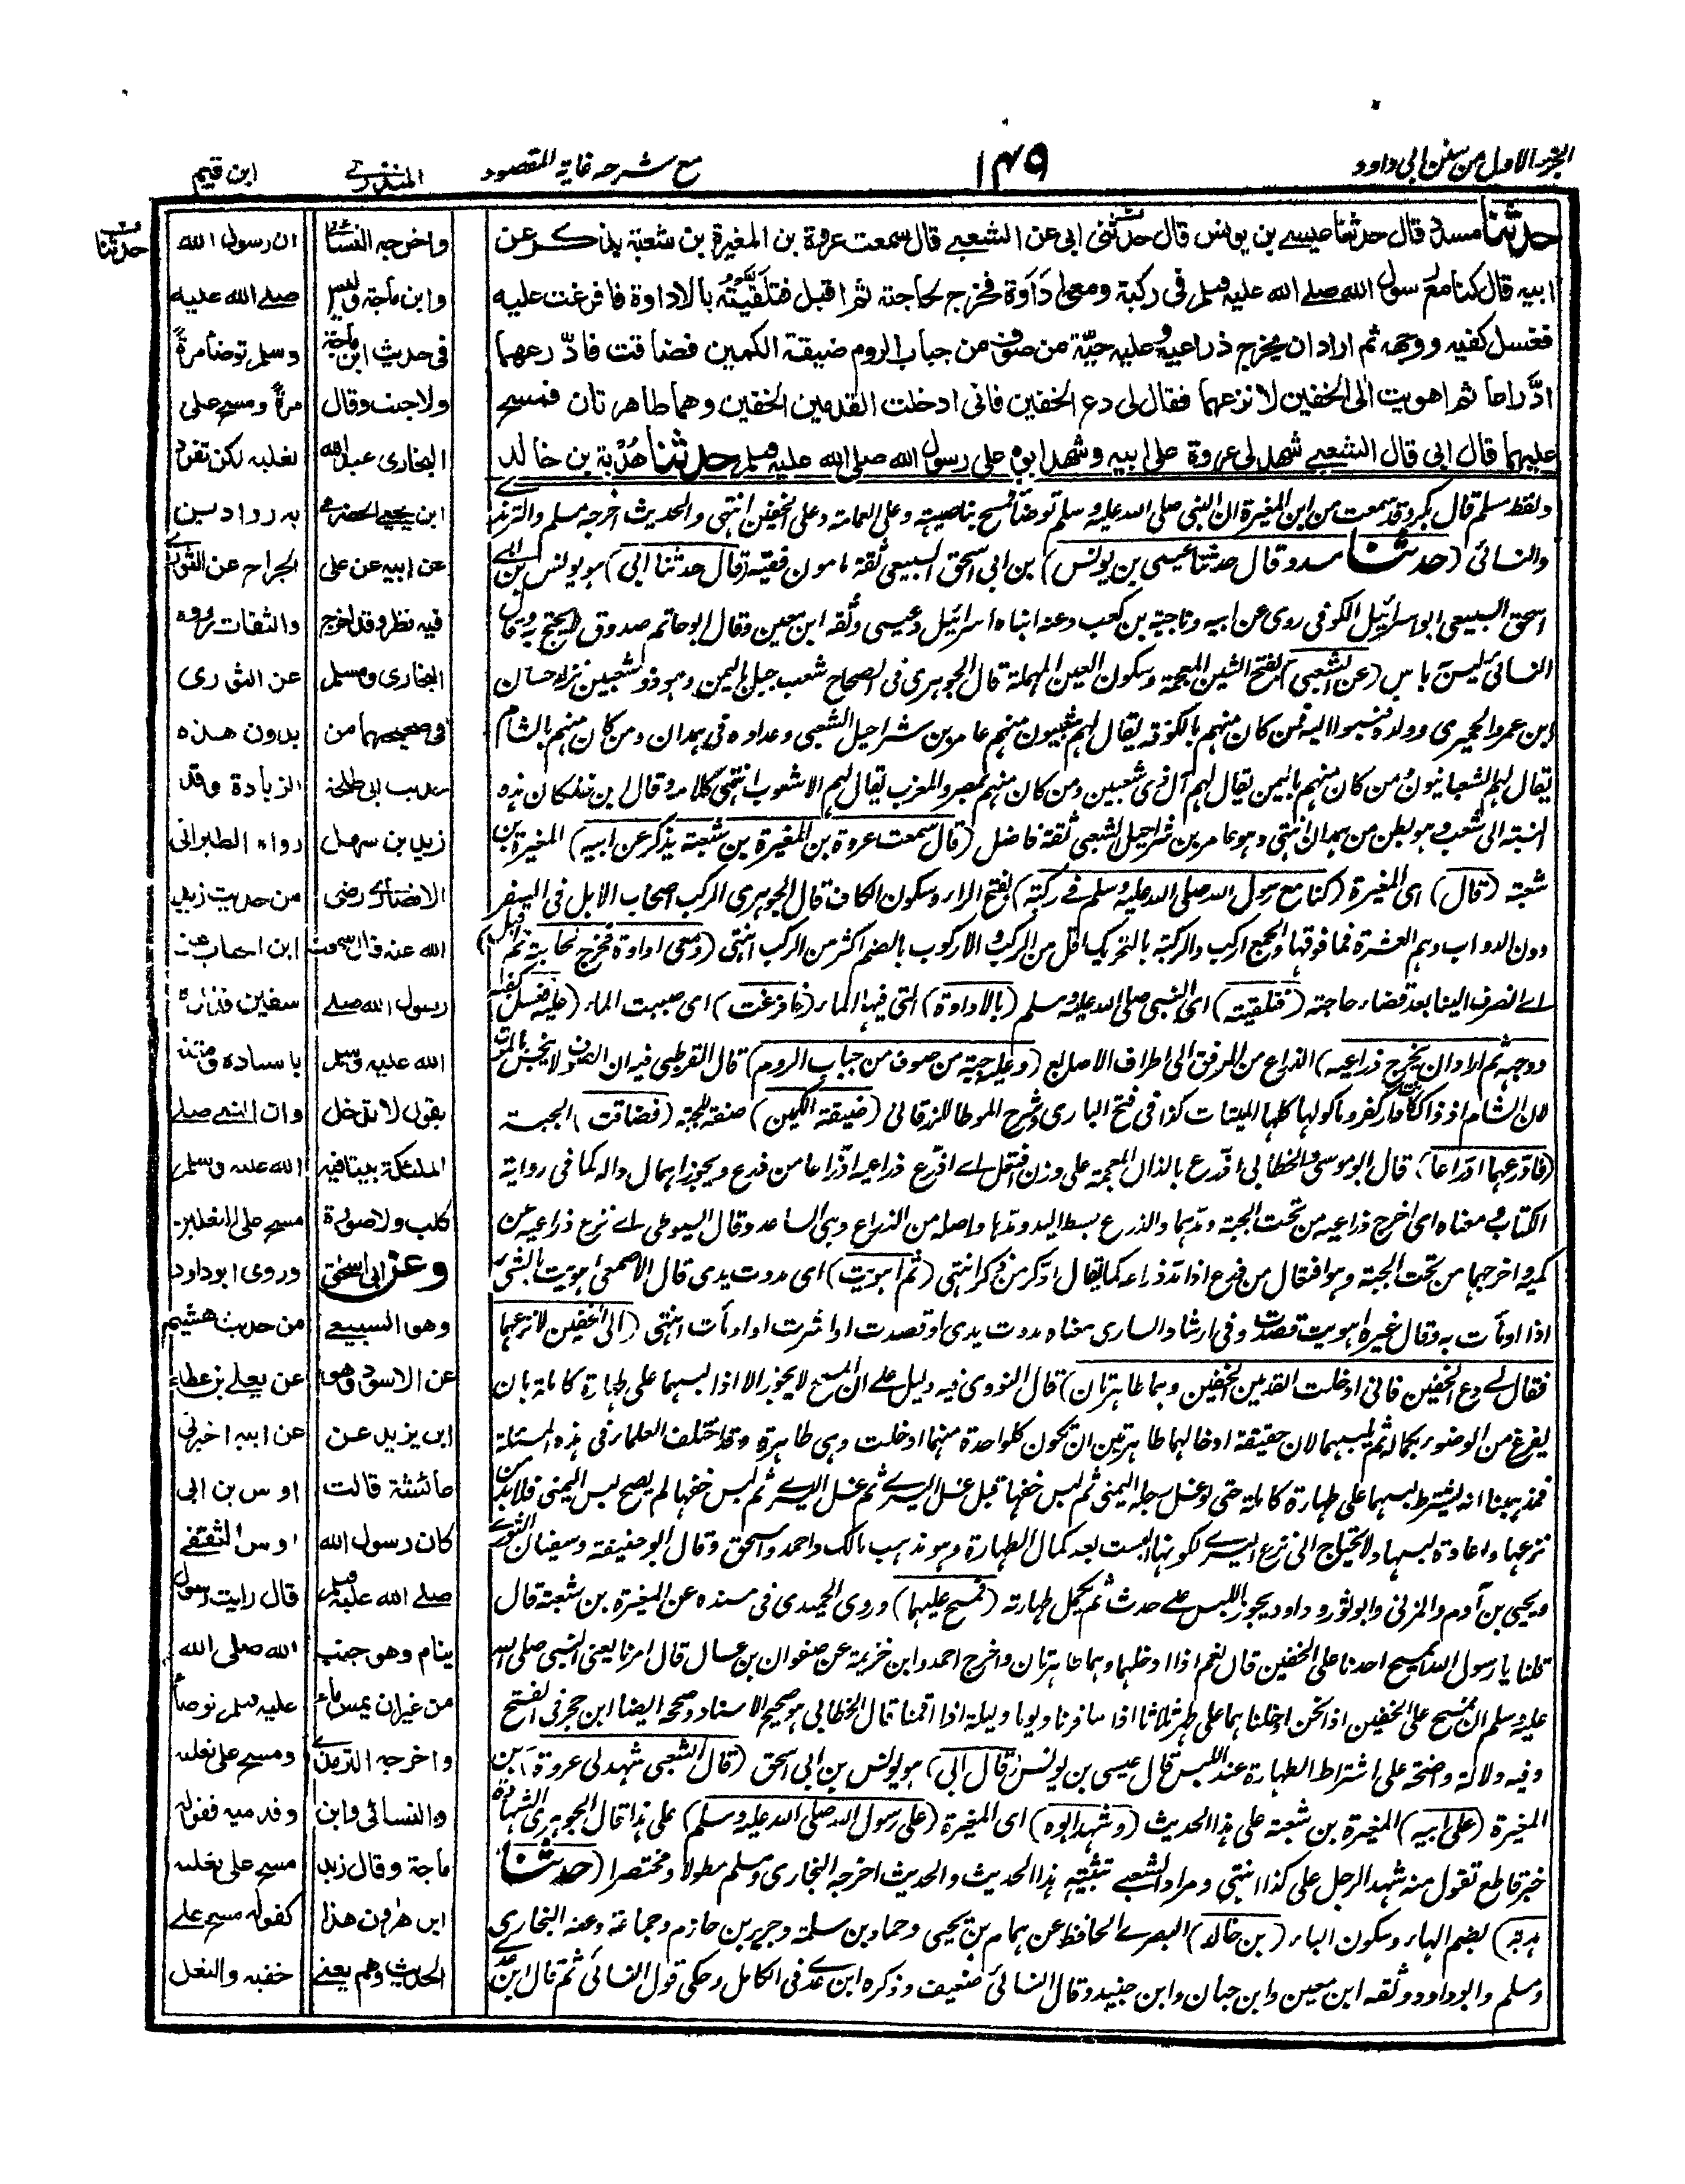 الجزء الاول من سنن ابی داود
١٤٩
مع شرحه غایة المقصود
المنذری
ابن قیم
حدثنا مسدد قال حدثنا عیسے بن یونس قال حدثنی ابی عن الشعبے قال سمعت عروة بن المغیرة بن شعبة یذکر عن
ابیه قال کنا مع رسول الله صلے الله علیه وسلم فی رکبة ومعی اداوة فخرج لحاجته ثم اقبل فتلقیته بالاداوة فافرغت علیه
فغسل کفیه ووجهه ثم اراد ان یخرج ذراعیه وعلیه جبّة من صوف من جباب الروم ضیقة الکمین فضاقت فادّرعهما
ادّراعا ثم اهویت الی الخفین لانزعهما فقال لی دع الخفین فانی ادخلت القدمین الخفین وهما طاهرتان فمسح
علیهما قال ابی قال الشعبے شهد لی عروة علی ابیه وشهد ابوه علی رسول الله صلی الله علیه وسلم حدثنا هُدْبة بن خالد
ولفظ مسلم قال بکر وقد سمعت من ابن المغیرة ان النبی صلی الله علیه وسلم توضأ فمسح بناصیته وعلی العمامة وعلی الخفین انتهی والحدیث اخرجه مسلم والترمذی
والنسائی (حدثنا مسدد قال حدثنا عیسی بن یونس) بن ابی اسحق السبیعی ثقة مامون فقیه (قال حدثنا ابی) هو یونس بن ابی
اسحق السبیعی ابو اسرائیل الکوفی روی عن ابیه وناجیة بن کعب وعنه ابناه اسرائیل وعیسی وثقه ابن معین وقال ابو حاتم صدوق لا یحتج به وقال
النسائی لیس به باس (عن الشعبی) بفتح الشین المعجمة وسکون العین المهملة قال الجوهری فی الصحاح شعب جبل بالیمن وهو ذو شعبین نزله حسان
ابن عمرو الحمیری وولده فنسبوا الیه فمن کان منهم بالکوفة یقال لهم شعبیون منهم عامر بن شراحیل الشعبی وعداده فی همدان ومن کان منهم بالشام
یقال لهم الشعبانیون ومن کان منهم بالیمن یقال لهم آل ذی شعبین ومن کان منهم بمصر والمغرب یقال لهم الاشعوب انتهی کلامه وقال ابن خلکان هذه
النسبة الی شعب وهو بطن من همدان انتهی وهو عامر بن شراحیل الشعبی ثقة فاضل (قال سمعت عروة بن المغیرة بن شعبة یذکر عن ابیه) المغیرة بن
شعبة (قال) ای المغیرة (کنا مع رسول الله صلی الله علیه وسلم فی رکبة) بفتح الراء وسکون الکاف قال الجوهری الرکب اصحاب الابل فی السفر
دون الدواب وهم العشرة فما فوقها والجمع ارکب والرکبة بالتحریک اقل من الرکب والارکوب بالضم اکثر من الرکب انتهی (ومعی اداوة فخرج لحاجته ثم اقبل)
اے انصرف الینا بعد قضاء حاجته (فتلقیته) ای النبی صلی الله علیه وسلم (بالاداوة) التی فیها الماء (فافرغت) ای صببت الماء (علیه فغسل کفیه
ووجهه ثم اراد ان یخرج ذراعیه) الذراع من المرفق الی اطراف الاصابع (وعلیه جبة من صوف من جباب الروم) قال القرطبی فیه ان الصوف لا ینجس بالموت
لان الشام اذ ذاک کانت دار کفر وماکولها کلها المیتات کذا فی فتح الباری وشرح الموطا للزرقانی (ضیقة الکمین) صفة للجبة (فضاقت) الجبة
(فادرعهما ادراعا) قال ابو موسی والخطابی اذّرع بالذال المعجمة علی وزن افتعل اے اذّرع ذراعیه اذّراعا من ذرع ویجوز اهمال داله کما فی روایة
الکتاب ومعناه ای اخرج ذراعیه من تحت الجبة ومدهما والذرع بسط الید ومدها واصله من الذراع وهی الساعد وقال السیوطی اے نزع ذراعیه عن
کمیه واخرجهما من تحت الجبة وهو افتعال من ذرع اذا مد ذراعه کما یقال ادکر من ذکر انتهی (ثم اهویت) ای مددت یدی قال الاصمعی اهویت بالشئ
اذا اومأت به وقال غیره اهویت قصدت وفی ارشاد الساری معناه مددت یدی او قصدت او اشرت او اومأت انتهی (الی الخفین لانزعهما
فقال لے دع الخفین فانی ادخلت القدمین الخفین وهما طاهرتان) قال النووی فیه دلیل علے ان المسح لا یجوز الا اذا لبسهما علی طهارة کاملة بان
یفرغ من الوضوء بکماله ثم یلبسهما لان حقیقة ادخالهما طاهرتین ان تکون کل واحدة منهما ادخلت وهی طاهرة وقد اختلف العلماء فی هذه المسئلة
فمذهبنا انه یشترط لبسهما علی طهارة کاملة حتی لو غسل رجله الیمنی ثم لبس خفها قبل غسل الیسرے ثم غسل الیسرے ثم لبس خفها لم یصح لبس الیمنی فلا بد من
نزعها واعادة لبسها ولا یحتاج الی نزع الیسرے لکونها البست بعد کمال الطهارة وهو مذهب مالک واحمد واسحق وقال ابو حنیفة وسفیان الثورے
ویحیی بن آدم والمزنی وابو ثور وداود یجوز اللبس علے حدث ثم یکمل طهارته (فمسح علیهما) وروی الحمیدی فی مسنده عن المغیرة بن شعبة قال
قلنا یا رسول الله ایمسح احدنا علی الخفین قال نعم اذا ادخلهما وهما طاهرتان واخرج احمد وابن خزیمة عن صفوان بن عسال قال امرنا یعنی النبی صلی الله
علیه وسلم ان نمسح علی الخفین اذا نحن ادخلناهما علی طهر ثلاثا اذا سافرنا ویوما ولیلة اذا اقمنا قال الخطابی هو صحیح الاسناد وصححه ایضا ابن حجر فی الفتح
وفیه دلالة واضحة علی اشتراط الطهارة عند اللبس قال عیسی بن یونس (قال ابی) هو یونس بن ابی اسحق (قال الشعبی شهد لی عروة) بن
المغیرة (علی ابیه) المغیرة بن شعبة علی هذا الحدیث (وشهد ابوه) ای المغیرة (علی رسول الله صلی الله علیه وسلم) علی هذا قال الجوهری الشهادة
خبر قاطع تقول منه شهد الرجل علی کذا انتهی ومراد الشعبے تثبیت هذا الحدیث والحدیث اخرجه البخاری ومسلم مطولا ومختصرا (حدثنا
هدبة) بضم الهاء وسکون الباء (بن خالد) البصرے الحافظ عن همام بن یحیی وحماد بن سلمة وجریر بن حازم وجماعة وعنه البخاری
ومسلم وابو داود ووثقه ابن معین وابن حبان وابن جنید وقال النسائی ضعیف وذکره ابن عدے فی الکامل وحکی قول النسائی ثم قال ابن عدے
واخرجه النسائی
وابن ماجة ولیس
فی حدیث ابن ماجة
ولا جنب وقال
البخاری عبد الله
ابن یحیے الحضرمے
عن ابیه عن علی
فیه نظر وقد اخرج
البخاری ومسلم
فی صحیحهما من
حدیث ابی طلحة
زید بن سهل
الانصاری رضی
الله عنه قال سمعت
رسول الله صلے
الله علیه وسلم
یقول لا تدخل
الملئکة بیتا فیه
کلب ولا صورة
وعن ابی اسحق
وهو السبیعے
عن الاسود وهو
ابن یزید عن
عائشة قالت
کان رسول الله
صلے الله علیه وسلم
ینام وهو جنب
من غیر ان یمس ماء
واخرجه الترمذی
والنسائی وابن
ماجة وقال یزید
ابن هارون هذا
الحدیث وهم یعنے
ان رسول الله
صلے الله علیه
وسلم توضأ مرة
مرة ومسح علی
نعلیه لکن تفرد
به رواد بن
الجراح عن الثوری
والثقات رووه
عن الثوری
بدون هذه
الزیادة وقد
رواه الطبرانی
من حدیث زید
ابن الحباب عن
سفین فذکره
باسناده ومتنه
وان النبی صلے
الله علیه وسلم
مسح علی النعلین
وروی ابو داود
من حدیث هشیم
عن یعلے بن عطاء
عن ابیه اخبرنی
اوس بن ابی
اوس الثقفے
قال رایت رسول
الله صلی الله
علیه وسلم توضأ
ومسح علی نعلیه
وقدمیه فقوله
مسح علی نعلیه
کقوله مسح علے
خفیه والنعل
حدثنا